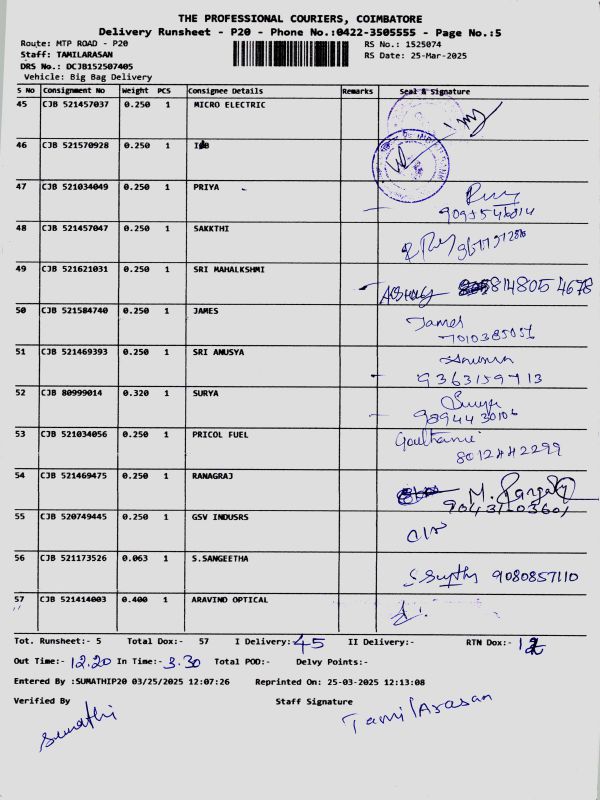 THE PROFESSIONAL COURIERS, COIMBATORE
Delivery Runsheet - P20 - Phone No.:0422-3505555 - Page No.:5
Route: MTP ROAD - P20 RS No.: 1525074
Staff: TAMILARASAN RS Date: 25-Mar-2025
DRS No.: DCJB152507405
Vehicle: Big Bag Delivery
S No Consignment No Weight PCS Consignee Details Remarks Seal & Signature
45 CJB 521457037 0.250 1 MICRO ELECTRIC
46 CJB 521570928 0.250 1
47 CJB 521034049 0.250 1 PRIYA
48 CJB 521457047 0.250 1 SAKKTHI
49 CJB 521621031 0.250 1 SRI MAHALKSHMI 814805 4678
50 CJB 521584740 0.250 1 JAMES James
7010385051
51 CJB 521469393 0.250 1 SRI ANUSYA
52 CJB 80999014 0.320 1 SURYA Surya
9894430106
53 CJB 521034056 0.250 1 PRICOL FUEL
8012442299
54 CJB 521469475 0.250 1 RANAGRAJ
90431-03601
55 CJB 520749445 0.250 1 GSV INDUSRS
56 CJB 521173526 0.063 1 S.SANGEETHA 9080857110
57 CJB 521414003 0.400 1 ARAVIND OPTICAL
Tot. Runsheet:- 5 Total Dox:- 57 I Delivery:- 45 II Delivery:- RTN Dox:- 12
Out Time:- 12.20 In Time:- 3.30 Total POD:- Delvy Points:-
Entered By :SUMATHIP20 03/25/2025 12:07:26 Reprinted On: 25-03-2025 12:13:08
Verified By Staff Signature
Sumathi TamilArasan